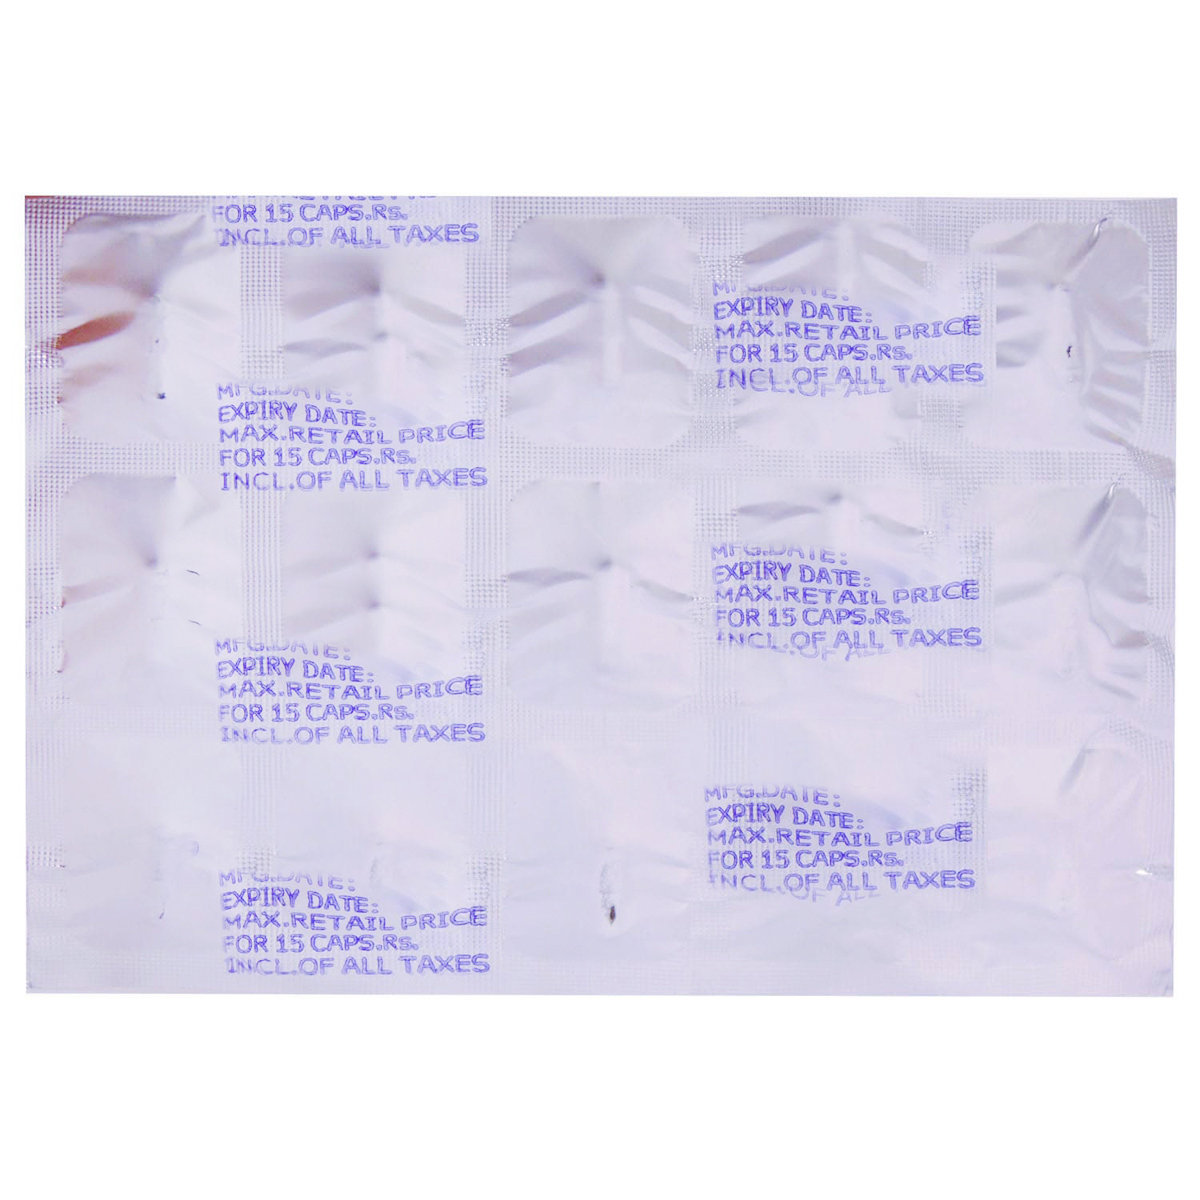 FOR 15 CAPS.Rs.
INCL.OF ALL TAXES
MFG.DATE:
EXPIRY DATE:
MAX.RETAIL PRICE
FOR 15 CAPS.Rs.
INCL.OF ALL TAXES
OF ALL
MFG.DATE:
EXPIRY DATE:
MAX.RETAIL PRICE
FOR 15 CAPS.Rs.
INCL.OF ALL TAXES
MFG.DATE:
EXPIRY DATE:
MAX.RETAIL PRICE
FOR 15 CAPS.Rs.
INCL.OF ALL TAXES
OF ALL
MFG.DATE:
EXPIRY DATE:
MAX.RETAIL PRICE
FOR 15 CAPS.Rs.
INCL.OF ALL TAXES
MFG.DATE:
EXPIRY DATE:
MAX.RETAIL PRICE
FOR 15 CAPS.Rs.
INCL.OF ALL TAXES
OF ALL
MFG.DATE:
EXPIRY DATE:
MAX.RETAIL PRICE
FOR 15 CAPS.Rs.
INCL.OF ALL TAXES